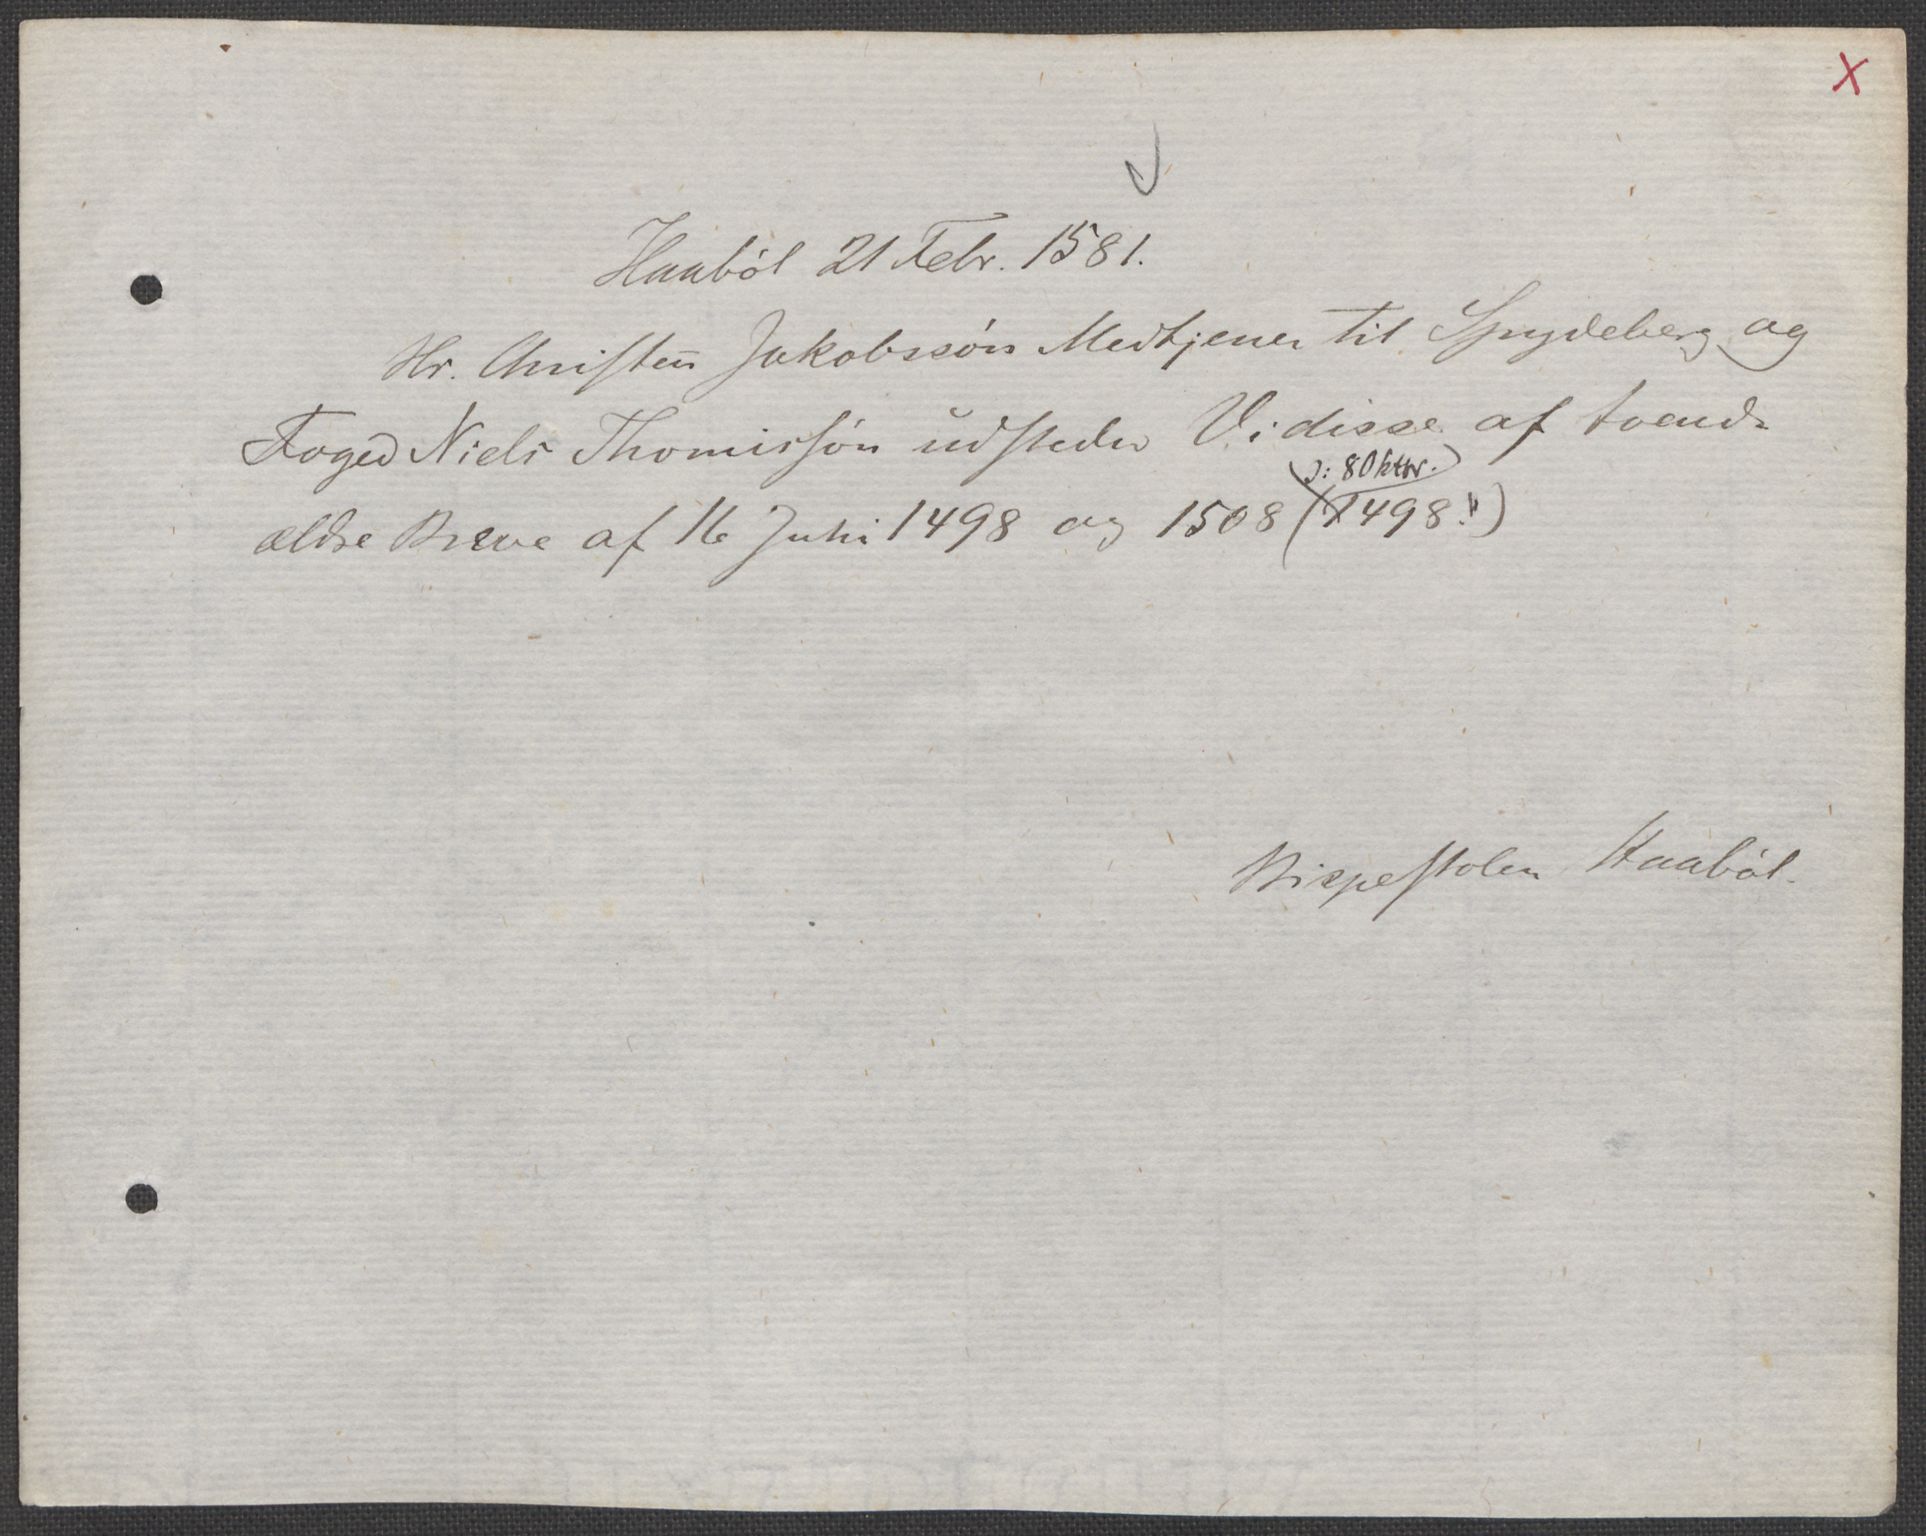 X
Haaböl 21 Febr. 1581.
Hr. Christen Jakobssön Medtjener til Spydeberg og
Foged Niels Thomissön udsteder Vidisse af tvende
ældre Breve af 16 Juni 1498 og 1508 (1498!!)
ɔ: 8 Oktbr.
Bispestolen Haaböl.